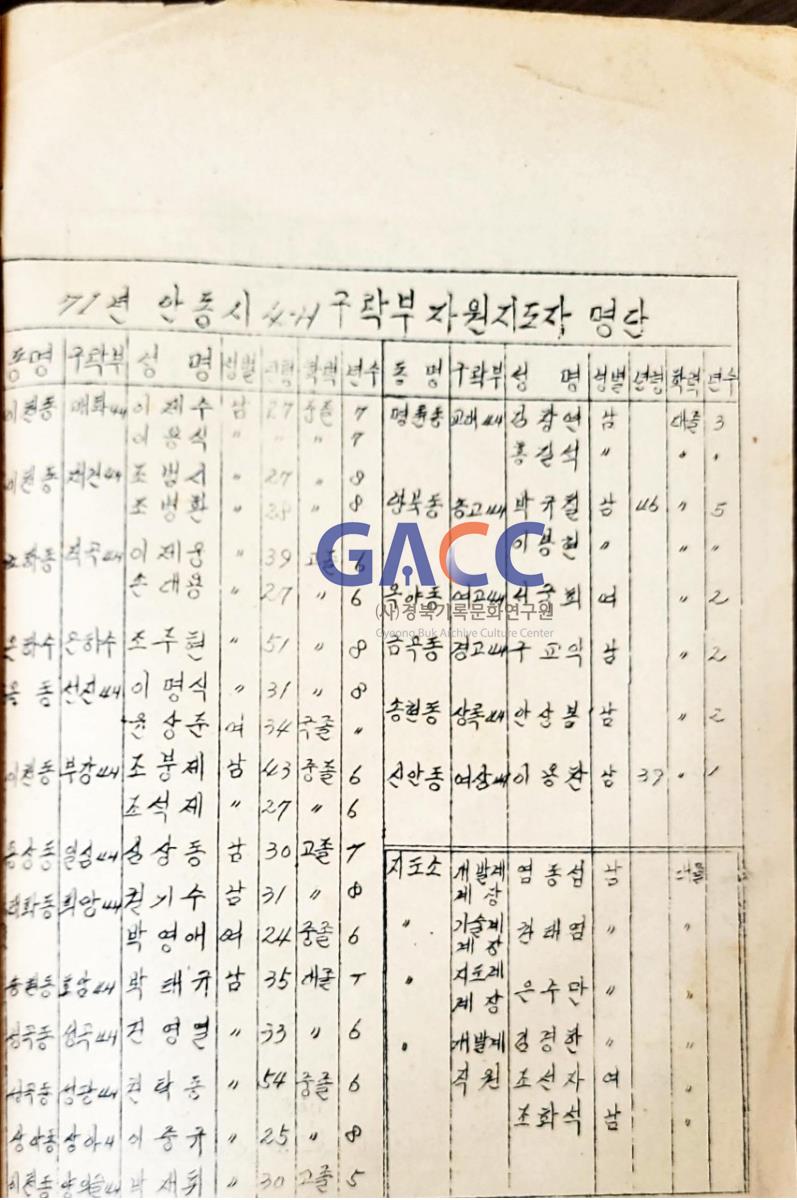 71년 안동시 4-H 구락부 자원지도자 명단
동명 구락부 성 명 성별 년령 학력 년수
이천동 매화4H 이재수 남 27 중졸 7
이용식 〃 〃 〃 7
이천동 조범서 〃 27 〃 8
조병환 〃 28 〃 8
이제웅 〃 39 고졸 6
손대용 〃 27 〃 6
은하수 은하수 조주현 〃 51 〃 8
이명식 〃 31 〃 8
윤상준 여 34 국졸 〃
이천동 부강4H 조붕제 남 43 중졸 6
조석제 〃 27 〃 6
상동 남 30 고졸 7
희망4H 권기수 남 31 〃 8
박영애 여 24 중졸 6
송현동 호암4H 박태규 남 35 대졸 7
성곡동 성곡4H 전영열 〃 33 〃 6
권탁동 〃 54 중졸 6
상아동 상아4H 이중규 〃 25 〃 8
이천동 박재휘 〃 30 고졸 5
동명 구락부 성 명 성별 년령 학력 년수
명륜동 교대4H 김창연 남 대졸 3
홍길석 〃 〃 〃
안북동 농고4H 박규철 남 46 〃 5
이봉현 〃 〃 〃
옥야동 여고4H 서중희 여 〃 2
금곡동 경고4H 구교익 남 〃 2
송현동 상록4H 안상봄 남 〃 2
신안동 여상4H 이용찬 남 39 〃 1
지도소 개발계 계장 염동섭 남 대졸
〃 기술계 계장 권태염 〃 〃
〃 지도계 계장 은수만 〃 〃
〃 개발계 김경한 〃 〃
직원 조선자 여 〃
조화석 남 〃
GACC
(사)경북기록문화연구원
Gyeong Buk Archive Culture Center